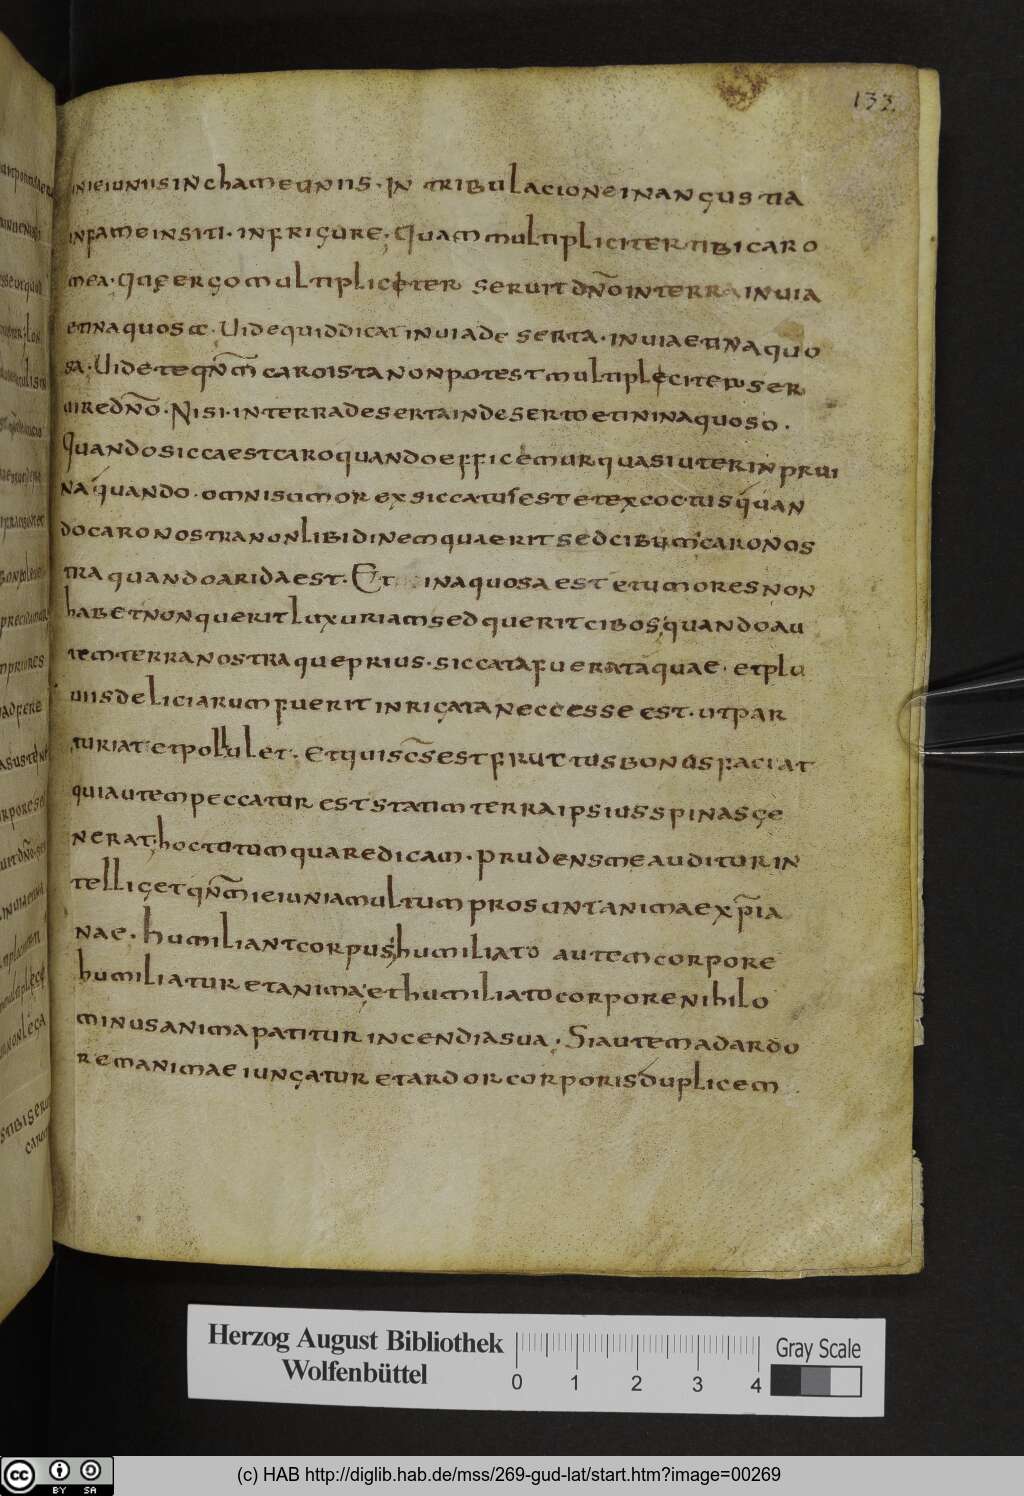 133.
inieiuniis in chameuniis · In tribulacione in angustia
in fame in siti · in frigure · Quam multipliciter tibi caro
mea · Quę ergo multipliciter seruit dño in terra inuia
et inaquosa · Uide quid dicat in uia deserta · inuia et inaquo
sa · Uidete qñm caro ista non potest multipliciter ser
uire dño · Nisi · in terra deserta in deserto et in inaquoso ·
Quando sicca est caro quando efficemur quasi uter in prui
na quando · omnis umor exsiccatus est et excoctus quan
do caro nostra non libidinem quaerit sed cibum caro nos
tra quando arida est · Et inaquosa est et umores non
habet non querit luxuriam sed querit cibos quando au
tem · terra nostra que prius · siccata fuerat aquae · et plu
uiis deliciarum fuerit inrigata neccesse est · ut par
turiat et pollulet · et qui scs est fructus bonus faciat
qui autem peccatur est statim terra ipsius spinas ge
nerat hoc totum quare dicam · prudens me auditur in
telliget qñm ieiunia multum prosunt animae xpia
nae · humiliant corpus humiliato autem corpore
humiliatur et anima et humiliato corpore nihilo
minus anima patitur incendia sua · Si autem ad ardo
rem animae iungatur et ardor corporis duplicem
Herzog August Bibliothek
Wolfenbüttel
0 1 2 3 4
Gray Scale
cc BY SA
(c) HAB http://diglib.hab.de/mss/269-gud-lat/start.htm?image=00269